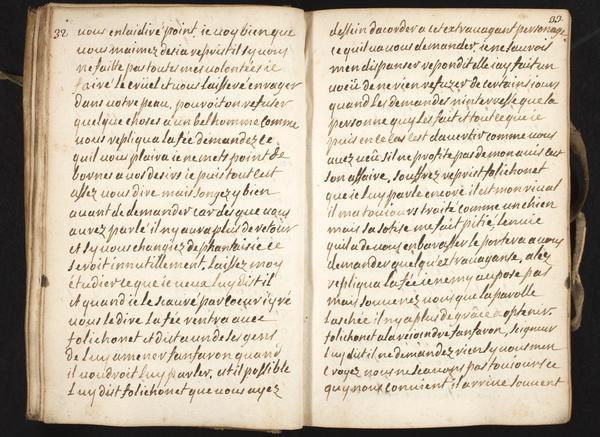 32
vous enlaidivé point, ie voy bien que
vous maimez desia reprist il sy vous
ne faitte pas toutes mes volontées ie
faire le crüel et vous laissere enrager
dans votre peau, pouvoit on refuser
quelque choses a un bel homme comme
vous repliqua la fée demandez ce
quil vous plaira ie ne mets point de
bornes a vos desirs ie puis tout cest
assez vous dire mais songez y bien
avant de demander car des que vous
aurez parlé il ny aura plus de retour
et sy vous changiez de phantaisie ce
seroit innutillement, laissez moy
étudier ce que ie veux luy dist il
et quand ie le scauré par coeur iyré
vous le dire la fée rentra avec
folichonet et dist a un de ses gens
de luy amener fanfaron quand
il voudroit luy parler, est il possible
luy dist folichonet que vous ayez
33
dessein dacorder a cet extravagant personage
ce quil va vous demander, ie ne saurois
men dispanser repondit elle iay fait un
voeü de ne rien refuzer de certains iours
quand les demandes ninteresse que la
personne quy les fait et tout ce que ie
puis en ce cas cest davertir comme vous
avez veü sil ne profite pas de mon avis cest
son affaire, souffrez reprist folichonet
que ie luy parle encore il est mon rival
il ma toujours traité comme un chien
mais sa sotise me fait pitié, lenvie
quil a de vous embarasser le portera a vous
demander quelque extravagance, alez
repliqua la fée ie ne my oupose pas
mais souvenez vous que la parolle
laschée il ny a plus de grace a optenir.
folichonet ala reioindre fanfaron, seigneur
luy dist il ne demandez rien sy vous men
croyez nous ne scavons pas toujours ce
quy nous convient il arrive souvent